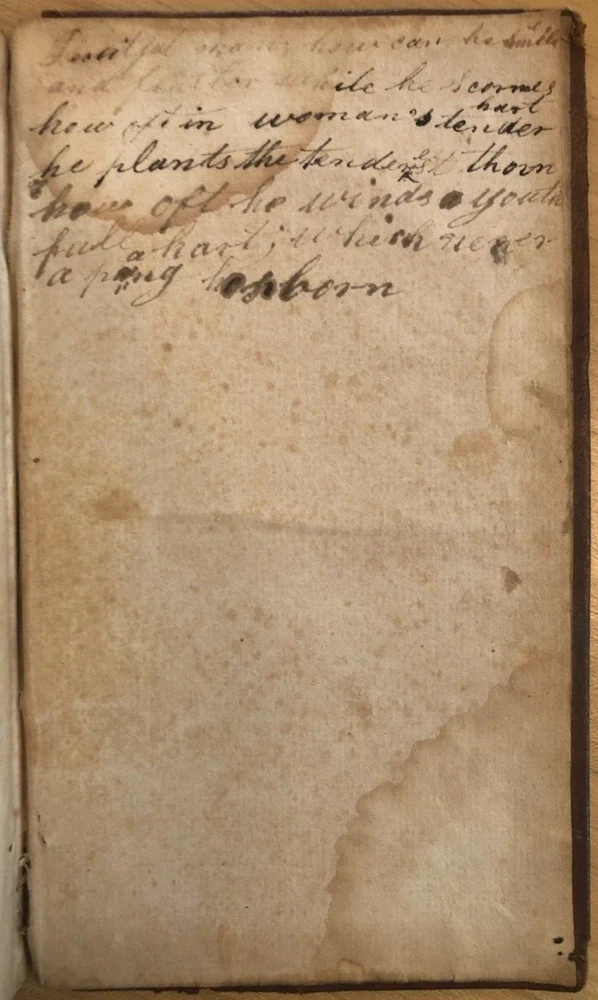 man, how can he smile
and while he scornes
how oft in woman's tender hart
he plants the tenderest thorn
how oft he winds a youth
full a hart; which never
a pang has born